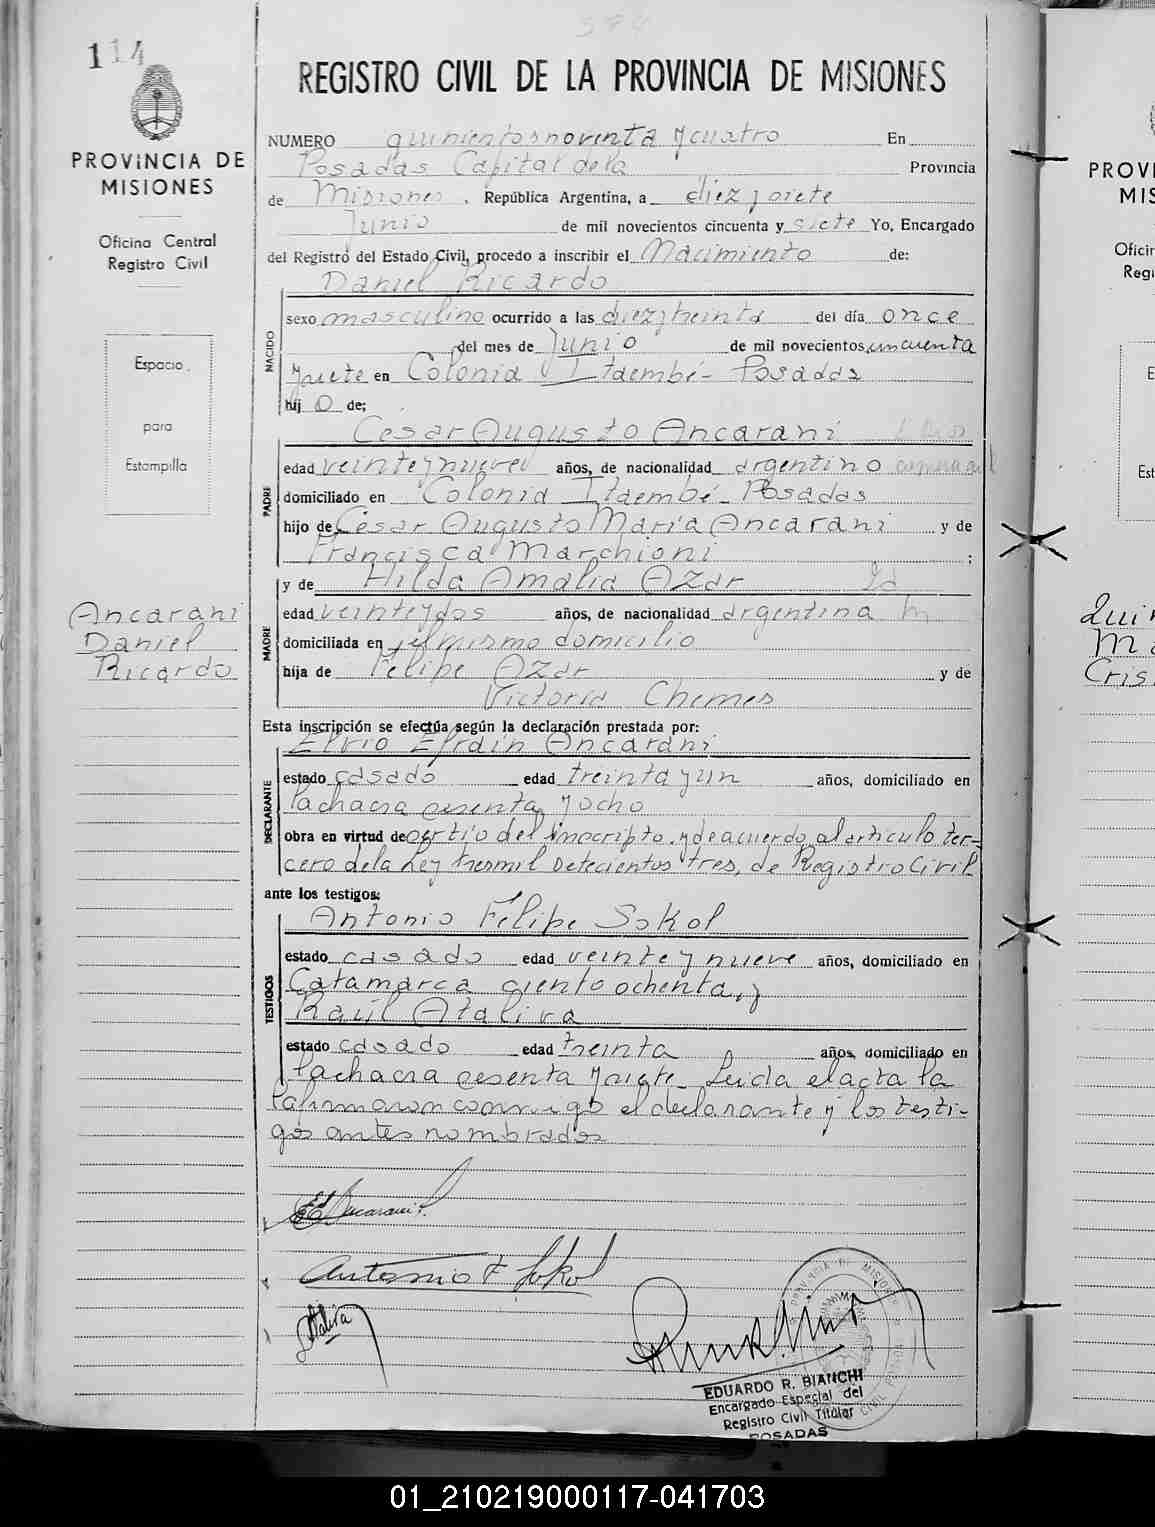 594
114
PROVINCIA DE
MISIONES
Oficina Central
Registro Civil
Espacio
para
Estampilla
Ancarani
Daniel
Ricardo
REGISTRO CIVIL DE LA PROVINCIA DE MISIONES
NUMERO quinientos noventa y cuatro En
Posadas Capital de la Provincia
de Misiones, República Argentina, a diez y siete
Junio de mil novecientos cincuenta y siete Yo, Encargado
del Registro del Estado Civil, procedo a inscribir el Nacimiento de:
Daniel Ricardo
NACIDO
sexo masculino ocurrido a las diez y treinta del día once
del mes de Junio de mil novecientos cincuenta
y siete en Colonia Itaembé - Posadas
hijo de;
Cesar Augusto Ancarani
PADRE
edad veinte y nueve años, de nacionalidad argentino
domiciliado en Colonia Itaembé - Posadas
hijo de Cesar Augusto María Ancarani y de
Francisca Marchioni ;
y de Hilda Amalia Azar
MADRE
edad veinte y dos años, de nacionalidad argentina
domiciliada en el mismo domicilio
hija de Felipe Azar y de
Victoria Chemes
Esta inscripción se efectúa según la declaración prestada por:
Elvio Efraín Ancarani
DECLARANTE
estado casado edad treinta y un años, domiciliado en
la chacra sesenta y ocho
obra en virtud de ser tío del inscripto. y de acuerdo al artículo ter-
cero de la Ley tres mil setecientos tres, de Registro Civil
ante los testigos:
Antonio Felipe Sokol
TESTIGOS
estado casado edad veinte y nueve años, domiciliado en
Catamarca ciento ochenta, y
Raúl Ataliva
estado casado edad treinta años, domiciliado en
la chacra sesenta y siete - Leida el acta la
firmaron conmigo el declarante y los testi-
gos antes nombrados
EEAncarani
Antonio F Sokol
Ataliva
EDUARDO R. BIANCHI
Encargado Especial del
Registro Civil Titular
POSADAS
PROVI
MIS
Oficin
Regi
E
Est
Quin
Ma
Cris
01_210219000117-041703